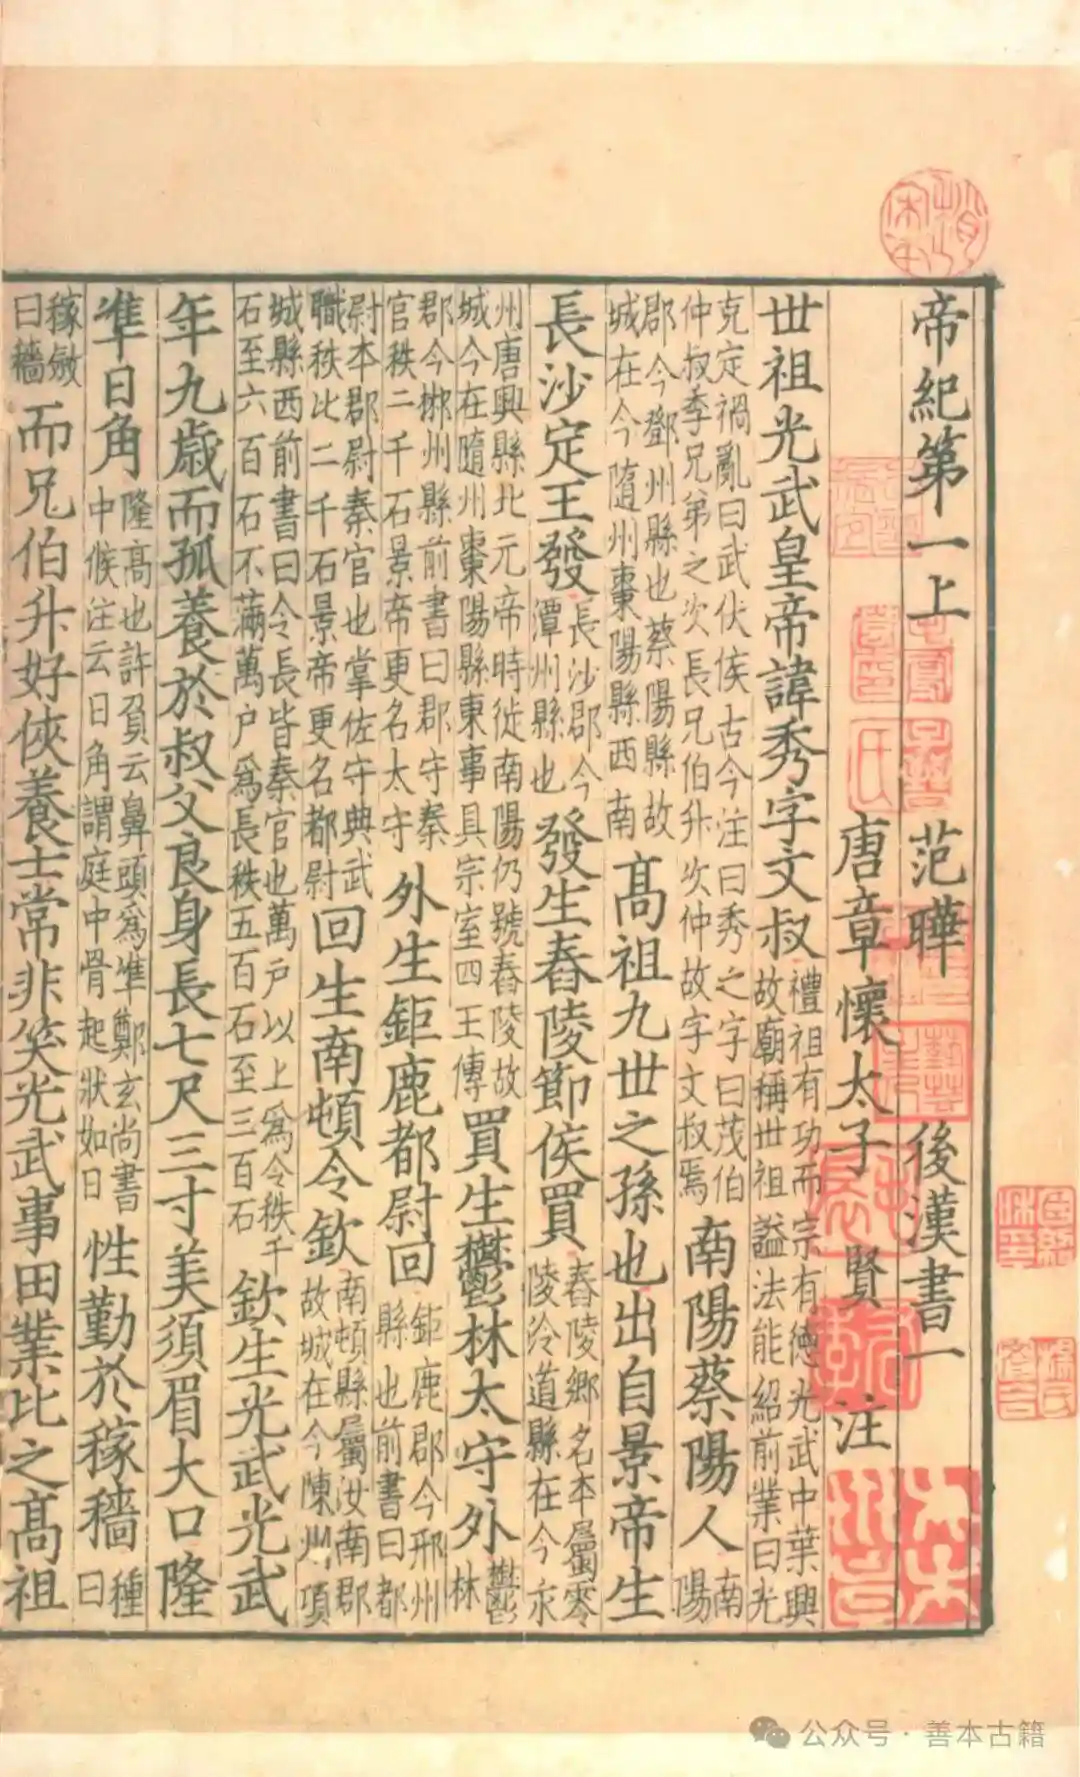 帝紀第一上 范曄 後漢書一
唐章懷太子賢注
世祖光武皇帝諱秀字文叔禮祖有功而宗有德光武中葉興故廟稱世祖謚法能紹前業曰光
克定禍亂曰武伏侯古今注曰秀之字曰茂伯仲叔季兄弟之次長兄伯升次仲故字文叔焉南陽蔡陽人南陽
郡今鄧州縣也蔡陽縣故城在今隨州棗陽縣西南高祖九世之孫也出自景帝生
長沙定王發長沙郡今潭州縣也發生舂陵節侯買舂陵鄉名本屬零陵泠道縣在今永
州唐興縣北元帝時徙南陽仍號舂陵故城今在隨州棗陽縣東事具宗室四王傳買生鬱林太守外鬱林
郡今郴州縣前書曰郡守秦官秩二千石景帝更名太守外生鉅鹿都尉回鉅鹿郡今邢州縣也前書曰都
尉本郡尉秦官也掌佐守典武職秩比二千石景帝更名都尉回生南頓令欽南頓縣屬汝南郡故城在今陳州項
城縣西前書曰令長皆秦官也萬戶以上為令秩千石至六百石不滿萬戶為長秩五百石至三百石欽生光武光武
年九歲而孤養於叔父良身長七尺三寸美須眉大口隆
準日角隆高也許負云鼻頭為準鄭玄尚書中候注云日角謂庭中骨起狀如日性勤於稼穡種曰
稼斂曰穡而兄伯升好俠養士常非笑光武事田業比之高祖
公众号·善本古籍